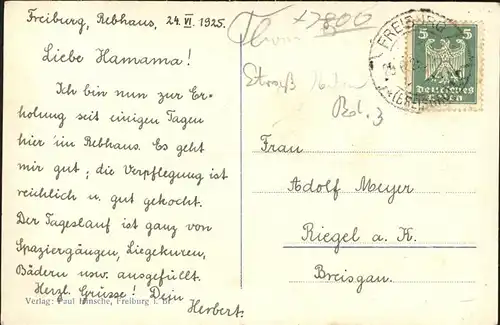 Freiburg, Rebhaus, 24. VI. 1925.
Liebe Hamama!
Ich bin nun zur Er-
holung seit einigen Tagen
hier im Rebhaus. Es geht
mir gut; die Verpflegung ist
reichlich u. gut gekocht.
Der Tageslauf ist ganz von
Spaziergängen, Liegekuren,
Bädern usw. ausgefüllt.
Herzl. Grüsse! Dein
Herbert.
Verlag: Paul Hinsche, Freiburg i. Br.
+7800
Bd. 3
FREIBURG
(BREISGAU)
5 5
Deutsches
Reich
Frau
Adolf Meyer
Riegel a. K.
Breisgau.